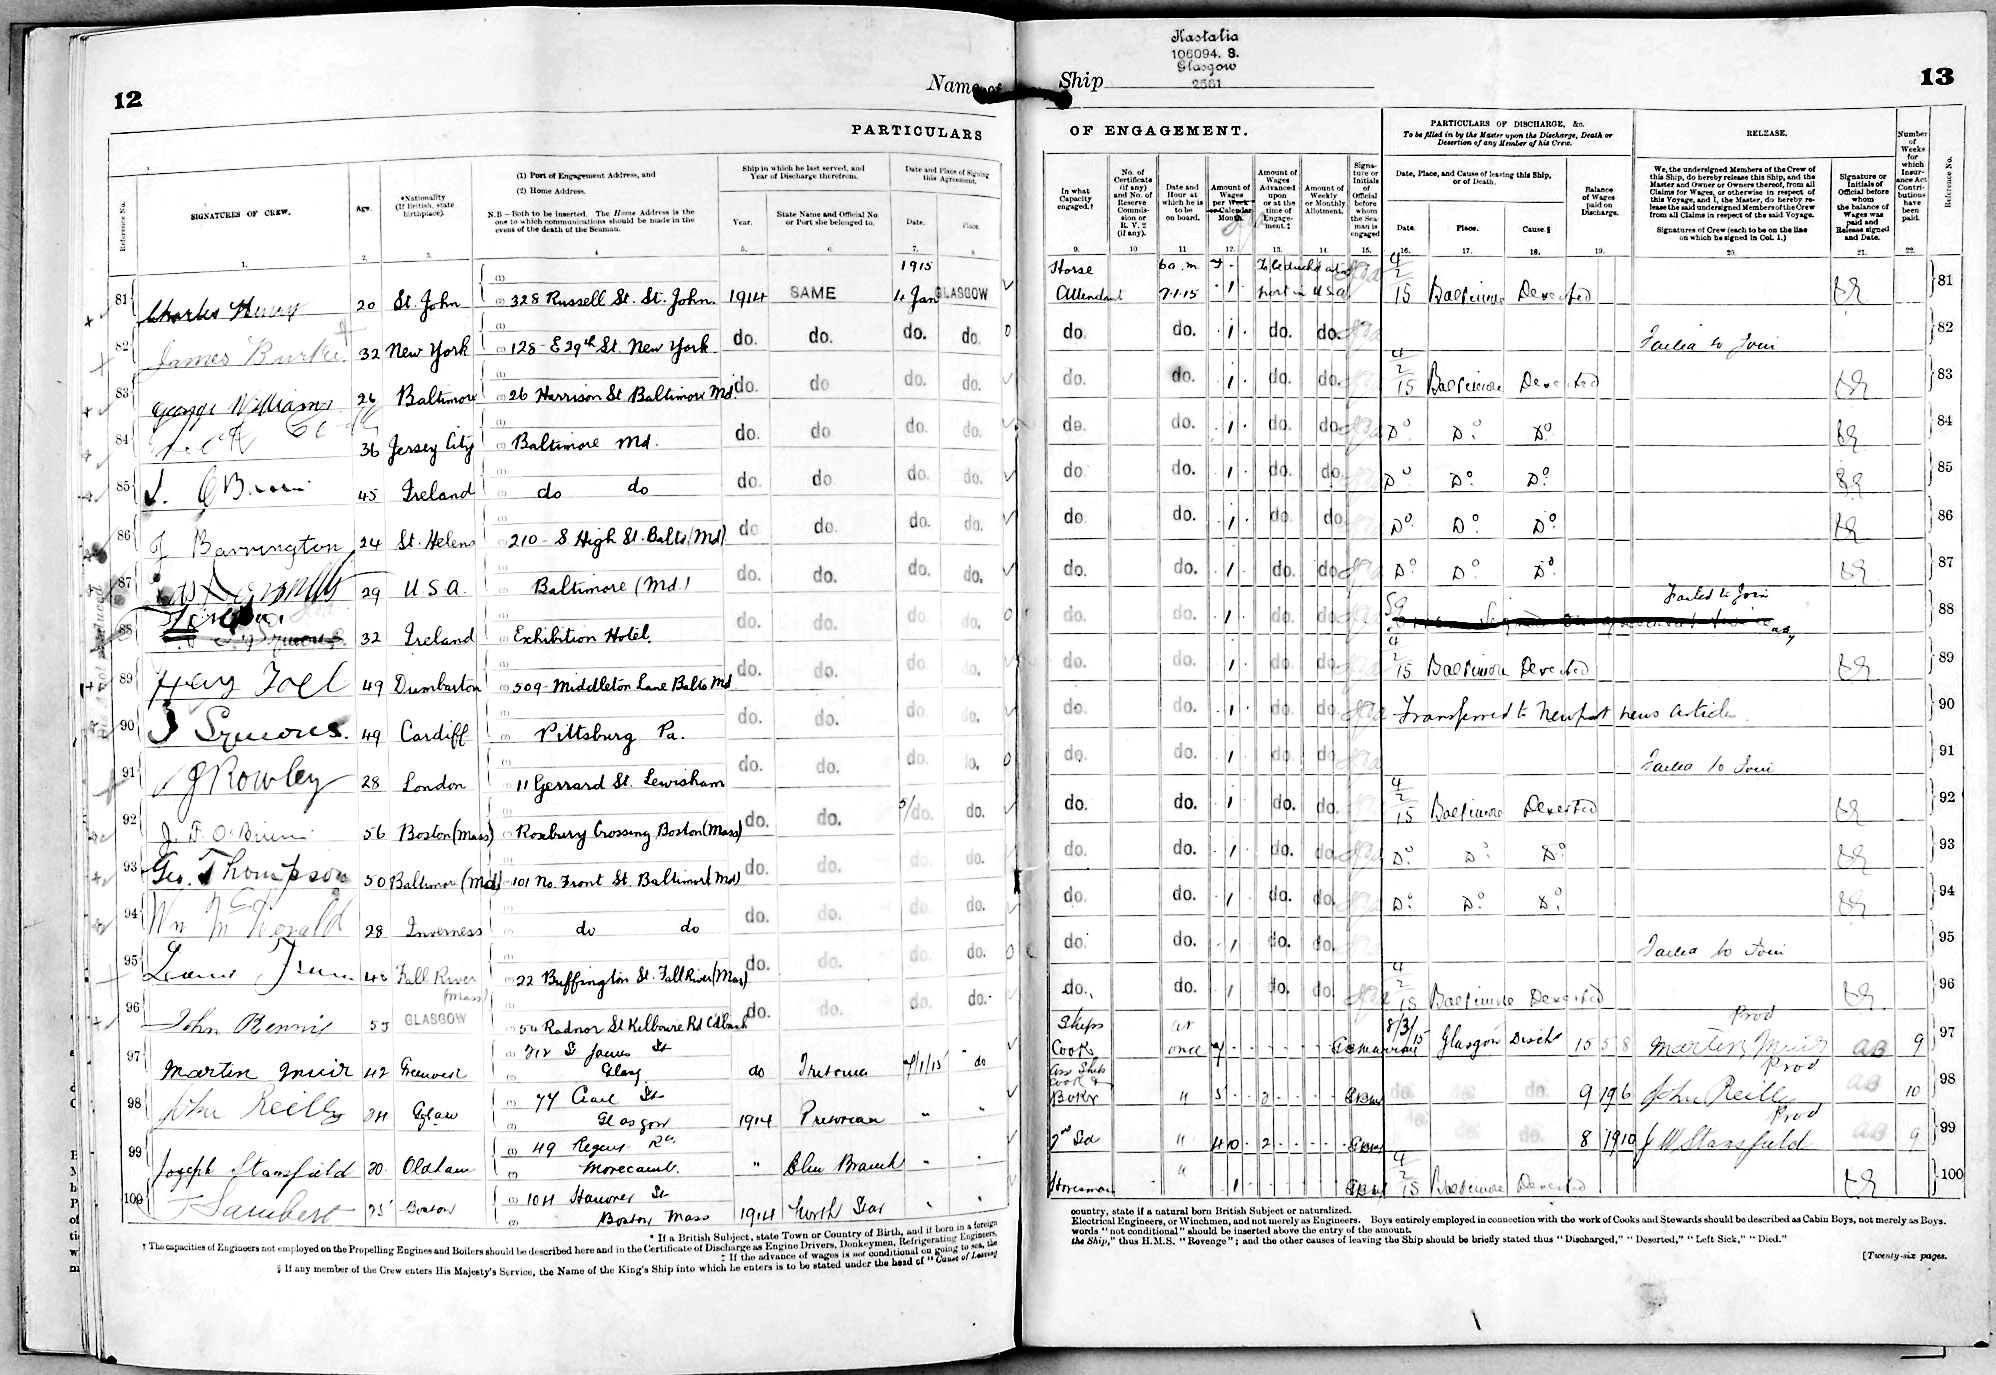 12
Name of
PARTICULARS
Reference No.
SIGNATURES OF CREW.
Age.
*Nationality (If British, state birthplace).
(1) Port of Engagement Address, and
(2) Home Address.
N.B—Both to be inserted. The Home Address is the one to which communications should be made in the event of the death of the Seaman.
Ship in which he last served, and Year of Discharge therefrom.
Year.
State Name and Official No. or Port she belonged to.
Date and Place of Signing this Agreement.
Date.
Place.
1. 2. 3. 4 5. 6. 7. 8
1915
81 Charles Henry 20 St. John 328 Russell St. St. John. 1914 SAME 4 Jan GLASGOW
82 James Burke 32 New York 128 - E 29th St. New York do. do. do. do.
83 George Williams 26 Baltimore 26 Harrison St Baltimore Md. do. do do. do.
84 36 Jersey City Baltimore Md. do. do do. do.
85 45 Ireland do do do. do. do. do.
86 J Barrington 24 St. Helens 210 - S High St. Balto (Md) do do. do. do.
87 29 U S A. Baltimore (Md) do. do. do. do.
88 32 Ireland Exhibition Hotel. do. do. do. do.
89 49 Dumbarton 509 - Middleton Lane Balto Md do. do. do. do.
90 J Symons. 49 Cardiff Pittsburg Pa. do. do. do. do.
91 J Rowley 28 London 11 Gerrard St. Lewisham do. do. do.
92 56 Boston (Mass) Roxbury Crossing Boston (Mass) do. do. do. do.
93 Geo. Thompson 50 Baltimore (Md) 101 No. Front St Baltimore (Md) do. do. do. do.
94 Wm McDonald 28 Inverness do do do. do. do. do.
95 Fall River (Mass) 22 Buffington St. Fall River (Mass) do. do. do. do.
96 John Rennie 55 GLASGOW 54 Radnor St do. do. do. do.
97 Martin Muir 42 Greenock 212 St James St Glasg do 7/1/15 " do
98 John Reilly 24 Glasgow 77 St Glasgow 1914 Pretorian " "
99 Joseph Stansfield 20 Oldham 49 Regent Rd. Morecambe. " "
100 F Lambert 25 Boston 104 Hanover St Boston Mass 1914 North Star " "
* If a British Subject, state Town or Country of Birth, and if born in a foreign
† The capacities of Engineers not employed on the Propelling Engines and Boilers should be described here and in the Certificate of Discharge as Engine Drivers, Donkeymen, Refrigerating Engineers,
‡ If the advance of wages is not conditional on going to sea, the
§ If any member of the Crew enters His Majesty's Service, the Name of the King's Ship into which he enters is to be stated under the head of "Cause of Leaving
Kastalia
106094. S.
Glasgow
2561
Ship
13
OF ENGAGEMENT.
PARTICULARS OF DISCHARGE, &c.
To be filled in by the Master upon the Discharge, Death or Desertion of any Member of his Crew.
RELEASE.
In what Capacity engaged.†
No. of Certificate (if any) and No. of Reserve Commission or R. V. 2 (if any).
Date and Hour at which he is to be on board.
Amount of Wages per Week or Calendar Month.
Amount of Wages Advanced upon or at the time of Engagement.‡
Amount of Weekly or Monthly Allotment.
Signature or Initials of Official before whom the Seaman is engaged
Date, Place, and Cause of leaving this Ship, or of Death.
Date.
Place.
Cause.§
Balance of Wages paid on Discharge.
We, the undersigned Members of the Crew of this Ship, do hereby release this Ship, and the Master and Owner or Owners thereof, from all Claims for Wages, or otherwise in respect of this Voyage, and I, the Master, do hereby release the said undersigned Members of the Crew from all Claims in respect of the said Voyage.
Signatures of Crew (each to be on the line on which he signed in Col. 1.)
Signature or Initials of Official before whom the balance of Wages was paid and Release signed and Date.
Number of Weeks for which Insurance Act Contributions have been paid.
Reference No.
9. 10 11 12. 13. 14. 15. 16. 17. 18. 19. 20. 21. 22.
Horse Attendant 6 a.m. 7.1.15 1 4/2/15 Baltimore Deserted 81
do. do. 1 do. do. Failed to Join 82
do. do. 1 do. do. 4/2/15 Baltimore Deserted 83
do. do. 1 do. do. Do Do Do 84
do. do. 1 do. do. Do Do Do 85
do. do. 1 do. do. Do Do Do 86
do. do. 1 do. do. Do Do Do 87
do. do. 1 do. do. Failed to Join 88
do. do. 1 do. do. 4/2/15 Baltimore Deserted 89
do. do. 1 do. do. Transferred to Newport News Articles 90
do. do. 1 do. do. Failed to Join 91
do. do. 1 do. do. 4/2/15 Baltimore Deserted 92
do. do. 1 do. do. Do Do Do 93
do. do. 1 do. do. Do Do Do 94
do. do. 1 do. do. Failed to Join 95
do. do. 1 do. do. 4/2/15 Baltimore Deserted 96
Ships Cook at once 7 8/3/15 Glasgow Disch 15 5 8 Martin Muir AB 9 97
Ass Ships Cook & Baker " 5 2 do. do. do. 9 19 6 John Reilly AB 10 98
2nd " 4 10 2 do. do. do. 8 19 10 J W Stansfield AB 9 99
Horseman " 1 4/2/15 Baltimore Deserted 100
country, state if a natural born British Subject or naturalized.
Electrical Engineers, or Winchmen, and not merely as Engineers. Boys entirely employed in connection with the work of Cooks and Stewards should be described as Cabin Boys, not merely as Boys.
words "not conditional" should be inserted above the entry of the amount.
the Ship," thus H.M.S. "Revenge"; and the other causes of leaving the Ship should be briefly stated thus "Discharged," "Deserted," "Left Sick," "Died."
[Twenty-six pages.